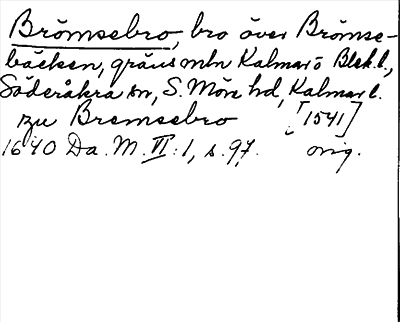 Brömsebro, bro över Brömse-
bäcken, gräns mln Kalmar o Blek. l.,
Söderåkra sn, S. Möre hd, Kalmar l.
zu Bremsebro [1541]
1640 Da. M. VI:1, s. 97. orig.